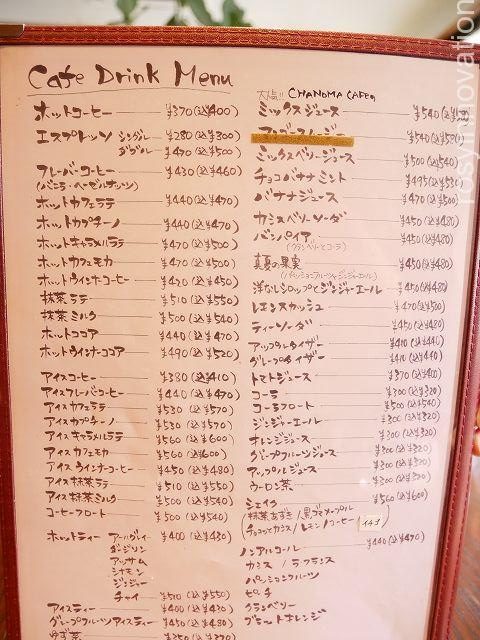 Cafe Drink Menu
ホットコーヒー ¥370(込¥400)
エスプレッソ シングル ¥280(込¥300)
ダブル ¥470(込¥500)
フレーバーコーヒー ¥430(込¥460)
(バニラ・ヘーゼルナッツ)
ホットカフェラテ ¥440(込¥470)
ホットカプチーノ ¥440(込¥470)
ホットキャラメルラテ ¥470(込¥500)
ホットカフェモカ ¥470(込¥500)
ホットウインナーコーヒー ¥420(込¥450)
抹茶ラテ ¥510(込¥550)
抹茶ミルク ¥500(込¥540)
ホットココア ¥440(込¥470)
ホットウインナーココア ¥490(込¥520)
アイスコーヒー ¥380(込¥410)
アイスフレーバーコーヒー ¥440(込¥470)
アイスカフェラテ ¥530(込¥570)
アイスカプチーノ ¥530(込¥570)
アイスキャラメルラテ ¥560(込¥600)
アイスカフェモカ ¥560(込¥600)
アイスウインナーコーヒー ¥450(込¥480)
アイス抹茶ラテ ¥510(込¥550)
アイス抹茶ミルク ¥500(込¥540)
コーヒーフロート ¥500(込¥540)
ホットティー アールグレイ ¥400(込¥430)
ダージリン
アッサム
シナモン
ジンジャー
チャイ ¥510(込¥550)
アイスティー ¥400(込¥430)
グレープフルーツアイスティー ¥450(込¥480)
ゆず茶 ¥350(込¥370)
CHANOMA CAFEの
ミックスジュース ¥540(込
¥540(込¥580)
ミックスベリージュース ¥500(込¥540)
チョコバナナミント ¥495(込¥530)
バナナジュース ¥470(込¥500)
カシスベリーソーダ ¥450(込¥480)
バンパイア ¥450(込¥480)
(クランベリーとコーラ)
真夏の果実 ¥450(込¥480)
(パッションフルーツとジンジャーエール)
洋なしシロップとジンジャーエール ¥450(込¥480)
レモンスカッシュ ¥470(込¥500)
ティーソーダ ¥450(込¥480)
アップルタイザー ¥410(込¥440)
グレープタイザー ¥410(込¥440)
トマトジュース ¥370(込¥400)
コーラ ¥300(込¥320)
コーラフロート ¥500(込¥540)
ジンジャーエール ¥300(込¥320)
オレンジジュース ¥300(込¥320)
グレープフルーツジュース ¥300(込¥320)
アップルジュース ¥300(込¥320)
ウーロン茶 ¥300(込¥320)
シェイク ¥560(込¥600)
抹茶あずき/黒ゴマメープル
チョコとカシス/レモン/コーヒー イチゴ
ノンアルコール ¥440(込¥470)
カシス / ラ・フランス
パッションフルーツ
ピーチ
クランベリー
ブラッドオレンジ
rosyrenovation